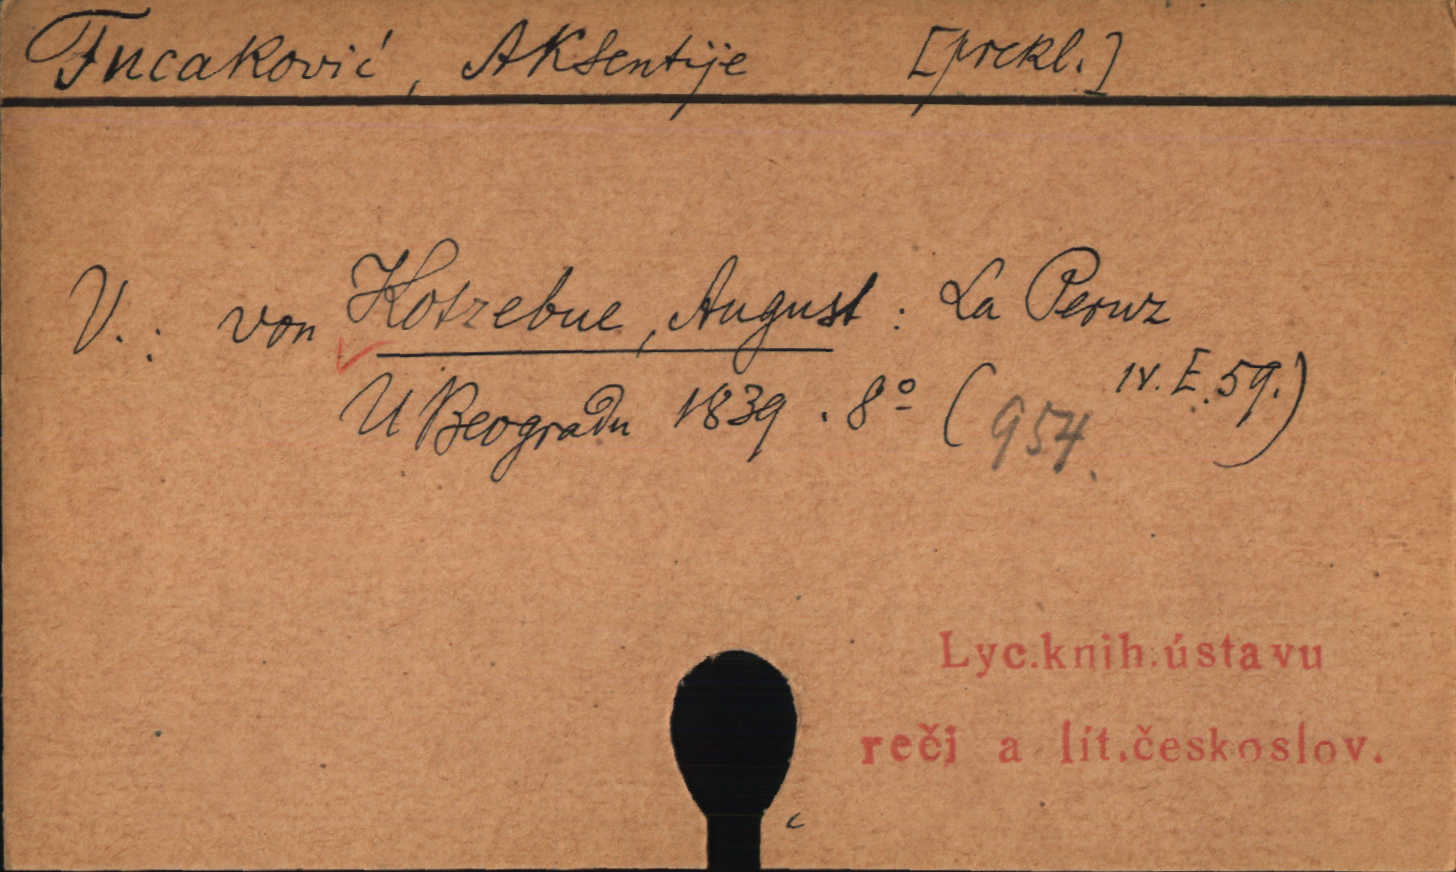 Fucaković, Aksentije [prekl.]
V.: von Kotzebue, August: La Peruz
U Beogradu 1839. 8º (954. IV. E. 59.)
Lyc.knih.ústavu
reči a lit.českoslov.